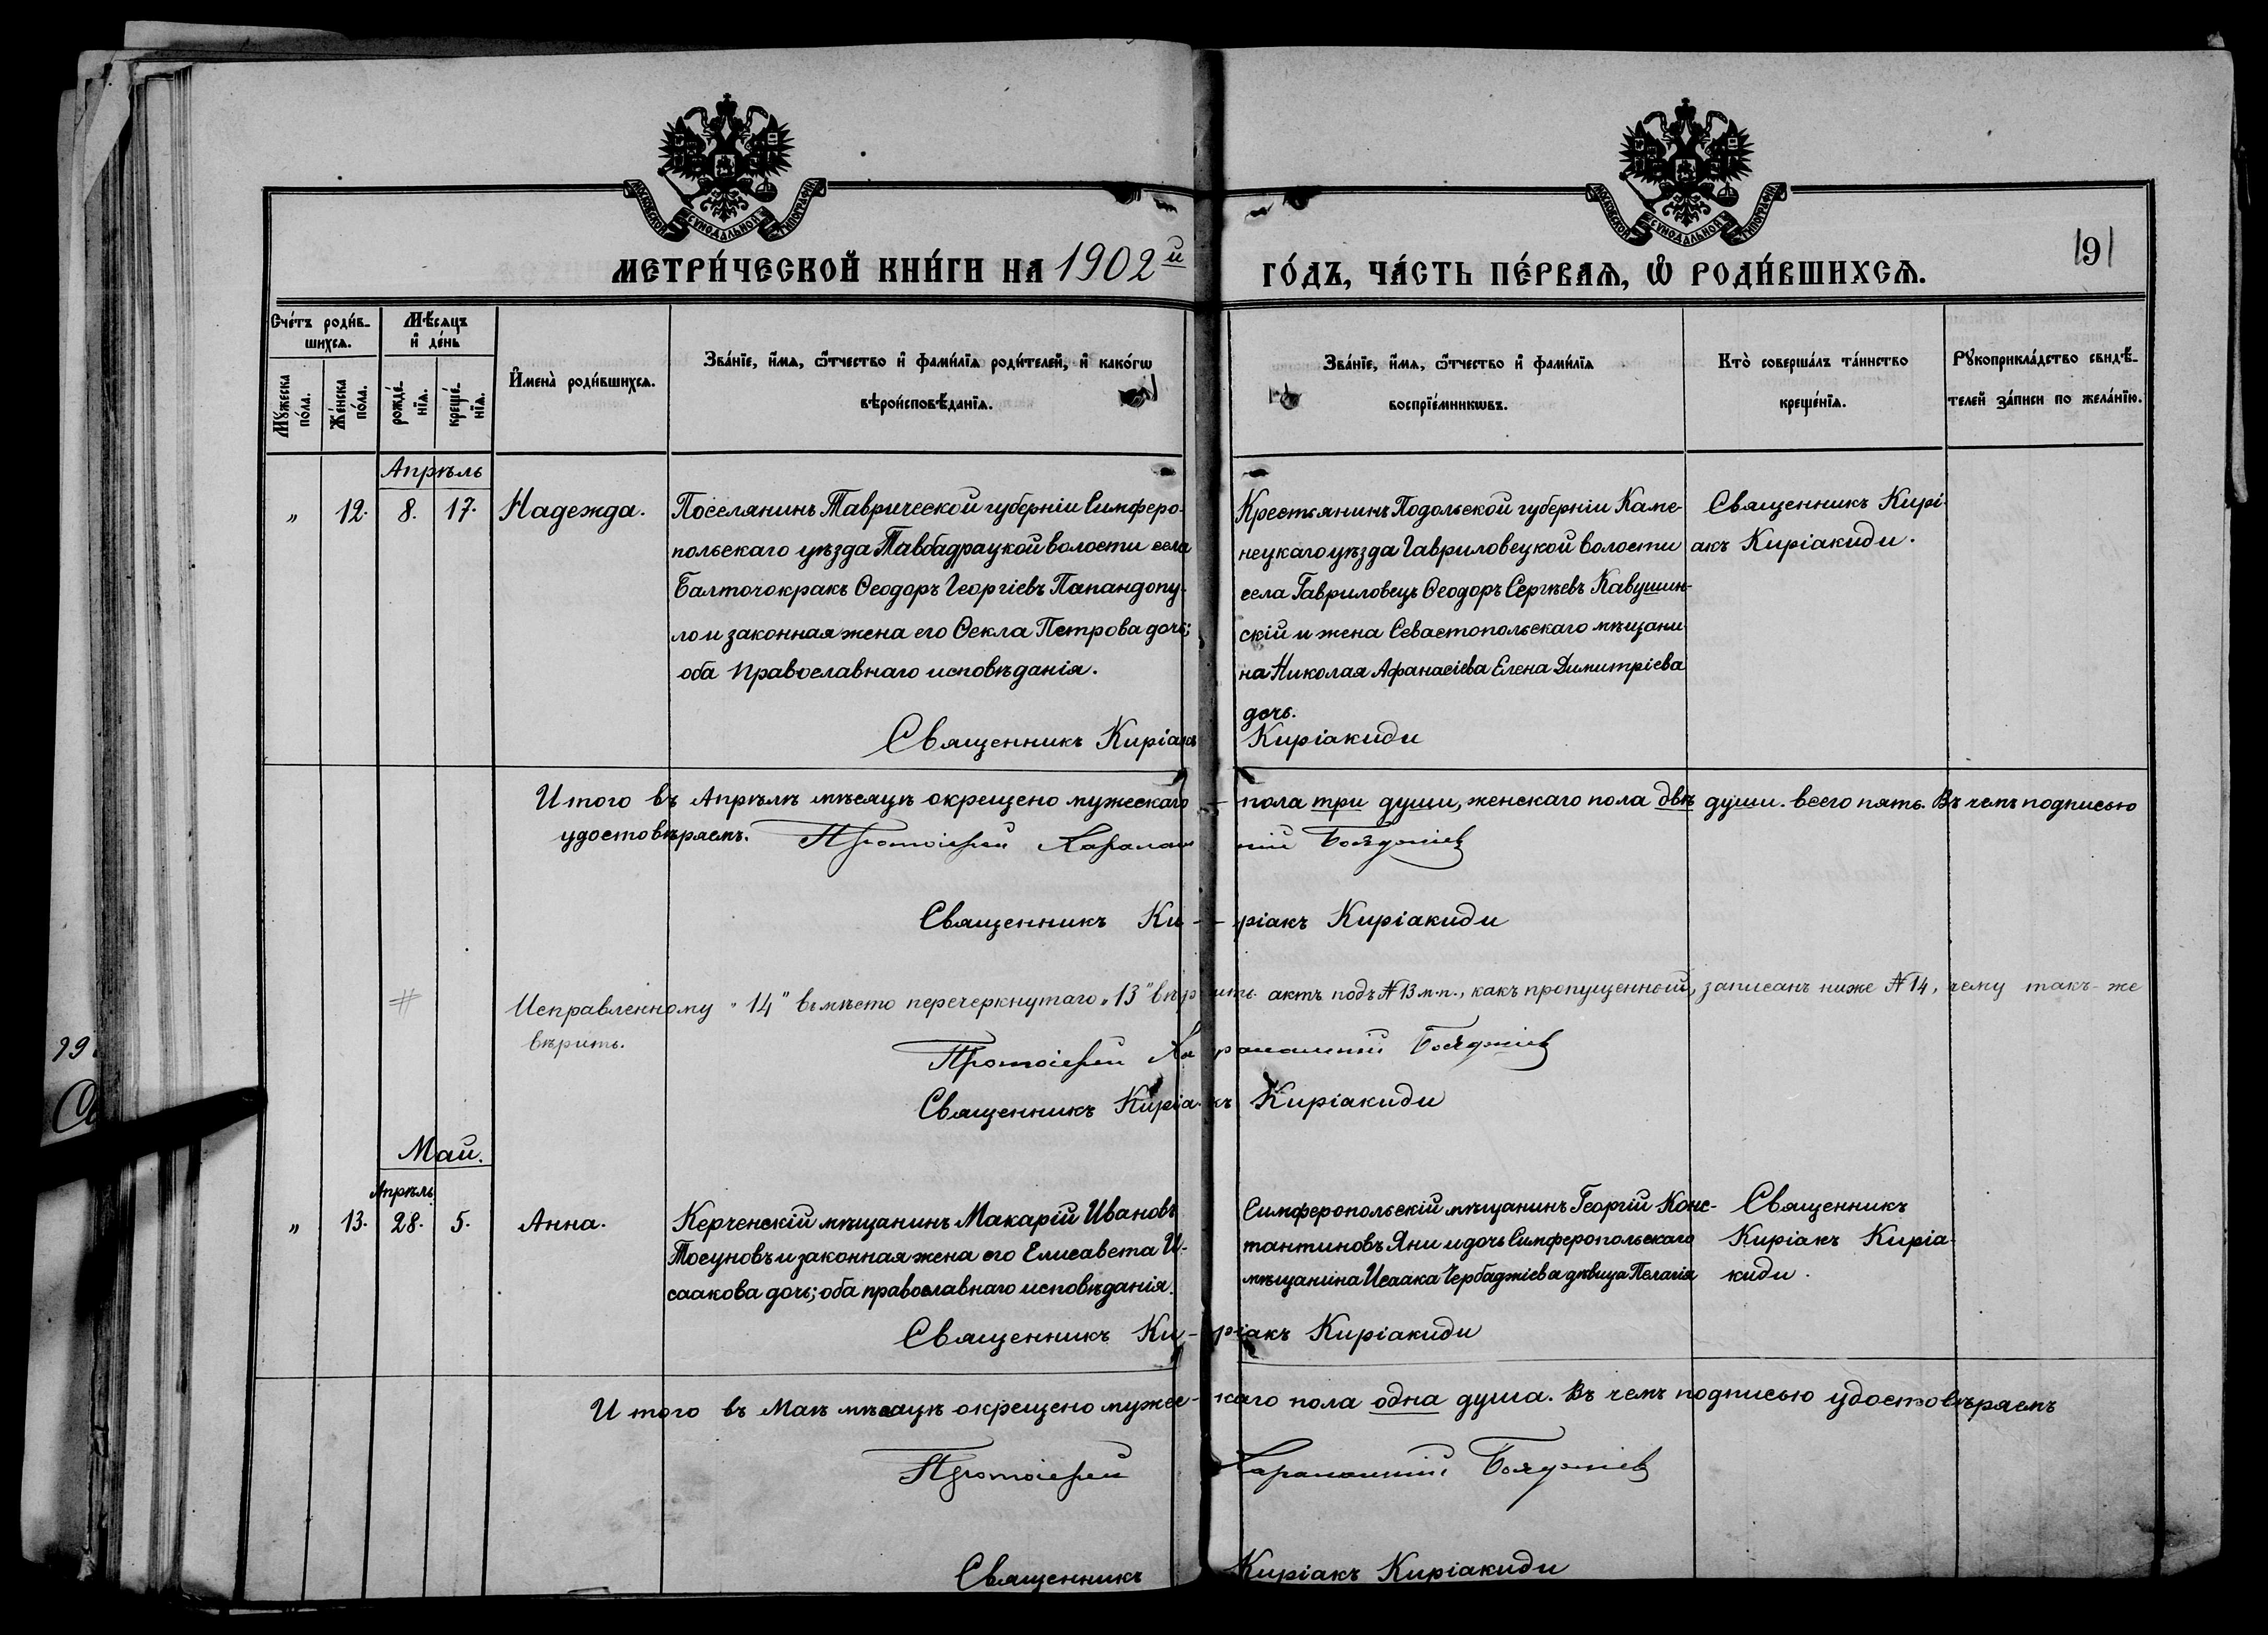 МОСКОВСКОЙ СѴНОДАЛЬНОЙ ТИПОГРАФІИ
МОСКОВСКОЙ СѴНОДАЛЬНОЙ ТИПОГРАФІИ
МЕТРИ́ЧЕСКОЙ КНИ́ГИ НА 1902й
ГО́ДЪ, ЧА́СТЬ ПЕ́РВАѦ, Ѽ РОДИ́ВШИХСѦ.
191
Сче́тъ роди́в-
шихсѧ.
Мꙋ́жеска
по́ла.
Же́нска
по́ла.
Мѣ́сѧцъ
и҆ де́нь
рожде́-
нїѧ.
креще́-
нїѧ.
И҆мена̀ роди́вшихсѧ.
Зва́нїе, и҆́мѧ, ѻ҆́тчество и҆ фами́лїѧ роди́телей, и҆ како́гѡ
вѣроисповѣ́данїѧ.
Зва́нїе, и҆́мѧ, ѻ҆́тчество и҆ фами́лїѧ
воспрїе́мникѡвъ.
Кто̀ соверша́лъ та́инство
креще́нїѧ.
Рꙋкоприкла́дство свидѣ́-
телей за́писи по жела́нїю.
Апрѣль
„ 12. 8. 17. Надежда.
Поселянинъ Таврической губерніи Симферо-
польскаго уѣзда Тавбадрацкой волости села
Балточокракъ Ѳеодоръ Георгіевъ Папандопу-
ло и законная жена его Ѳекла Петрова дочь;
оба Православнаго исповѣданія.
Крестьянинъ Подольской губерніи Каме-
нецкаго уѣзда Гавриловецкой волости
села Гавриловецъ Ѳеодоръ Сергѣевъ Кавушин-
скій и жена Севастопольскаго мѣщани
на Николая Афанасіева Елена Димитріева
дочь.
Священникъ Кирі-
акъ Киріакиди.
Священникъ Киріакъ Киріакиди
Итого въ Апрѣлѣ мѣсяцѣ окрещено мужескаго пола три души, женскаго пола двѣ души. всего пять. Въ чемъ подписью
удостовѣряемъ. Протоіерей Харалампій Бояджіев
Священникъ Ки-ріакъ Киріакиди
# Исправленному „14" вьмѣсто перечеркнутаго „13" вѣрить. актъ подъ № 13 м.п., какъ пропущенный, записанъ ниже № 14, чему такъ-же
вѣрить.
Протоіерей Харалампій Бояджіев
Священникъ Киріакъ Киріакиди
99
Св
Май.
Апрѣль
„ 13. 28. 5. Анна.
Керченскій мѣщанинъ Макарій Ивановъ
Тосуновъ и законная жена его Елисавета И-
саакова дочь; оба православнаго исповѣданія.
Симферопольскій мѣщанинъ Георгій Конс-
тантиновъ Яни и дочь Симферопольскаго
мѣщанина Исаака Чербаджіева дѣвица Пелагія
Священникъ
Киріакъ Киріа-
киди.
Священникъ Ки-ріакъ Киріакиди
Итого въ Маѣ мѣсяцѣ окрещено мужес-каго пола одна душа. Въ чемъ подписью удостовѣряемъ
Протоіерей Харалампій Бояджіев
Священникъ Киріакъ Киріакиди